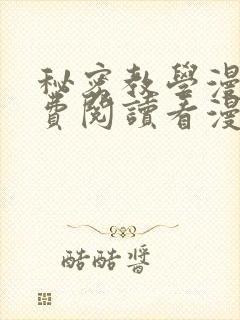 秘密教學漫
費閱讀看漫
酷酷醬